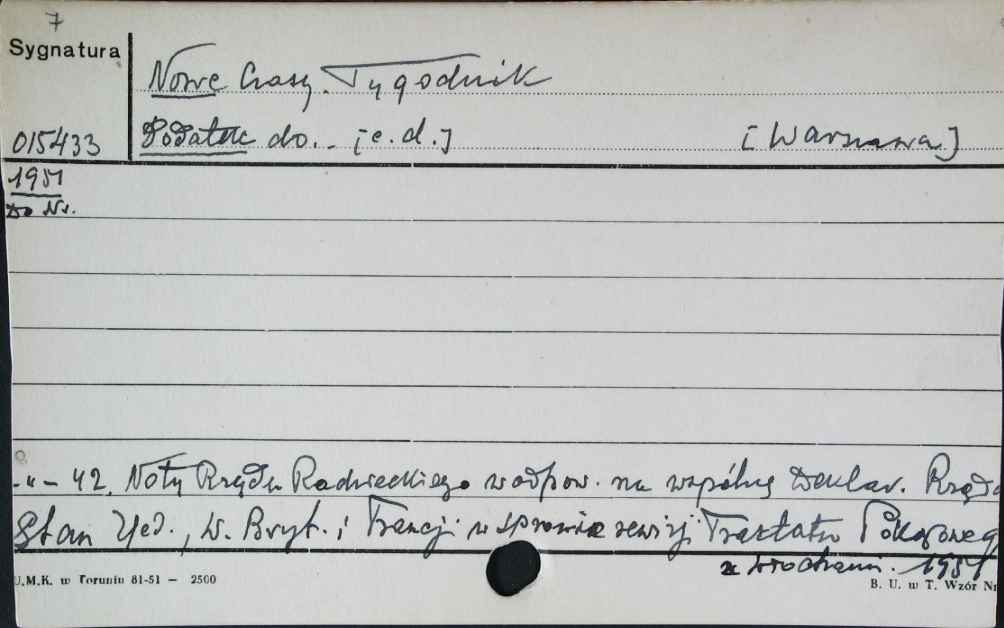 7
Sygnatura
Nowe Czasy. Tygodnik
015433
Dodatek do.. [c.d.] [Warszawa]
1951
Do Nr.
-"- 42. Noty Rządu Radzieckiego w odpow. na wspólną Deklar. Rządu
Stan Zjed., W. Bryt. i Francji w sprawie rewizji Traktatu Pokojoweg
z Włochami. 1951
U.M.K. w Toruniu 81-51 — 2500
B. U. w T. Wzór Nr